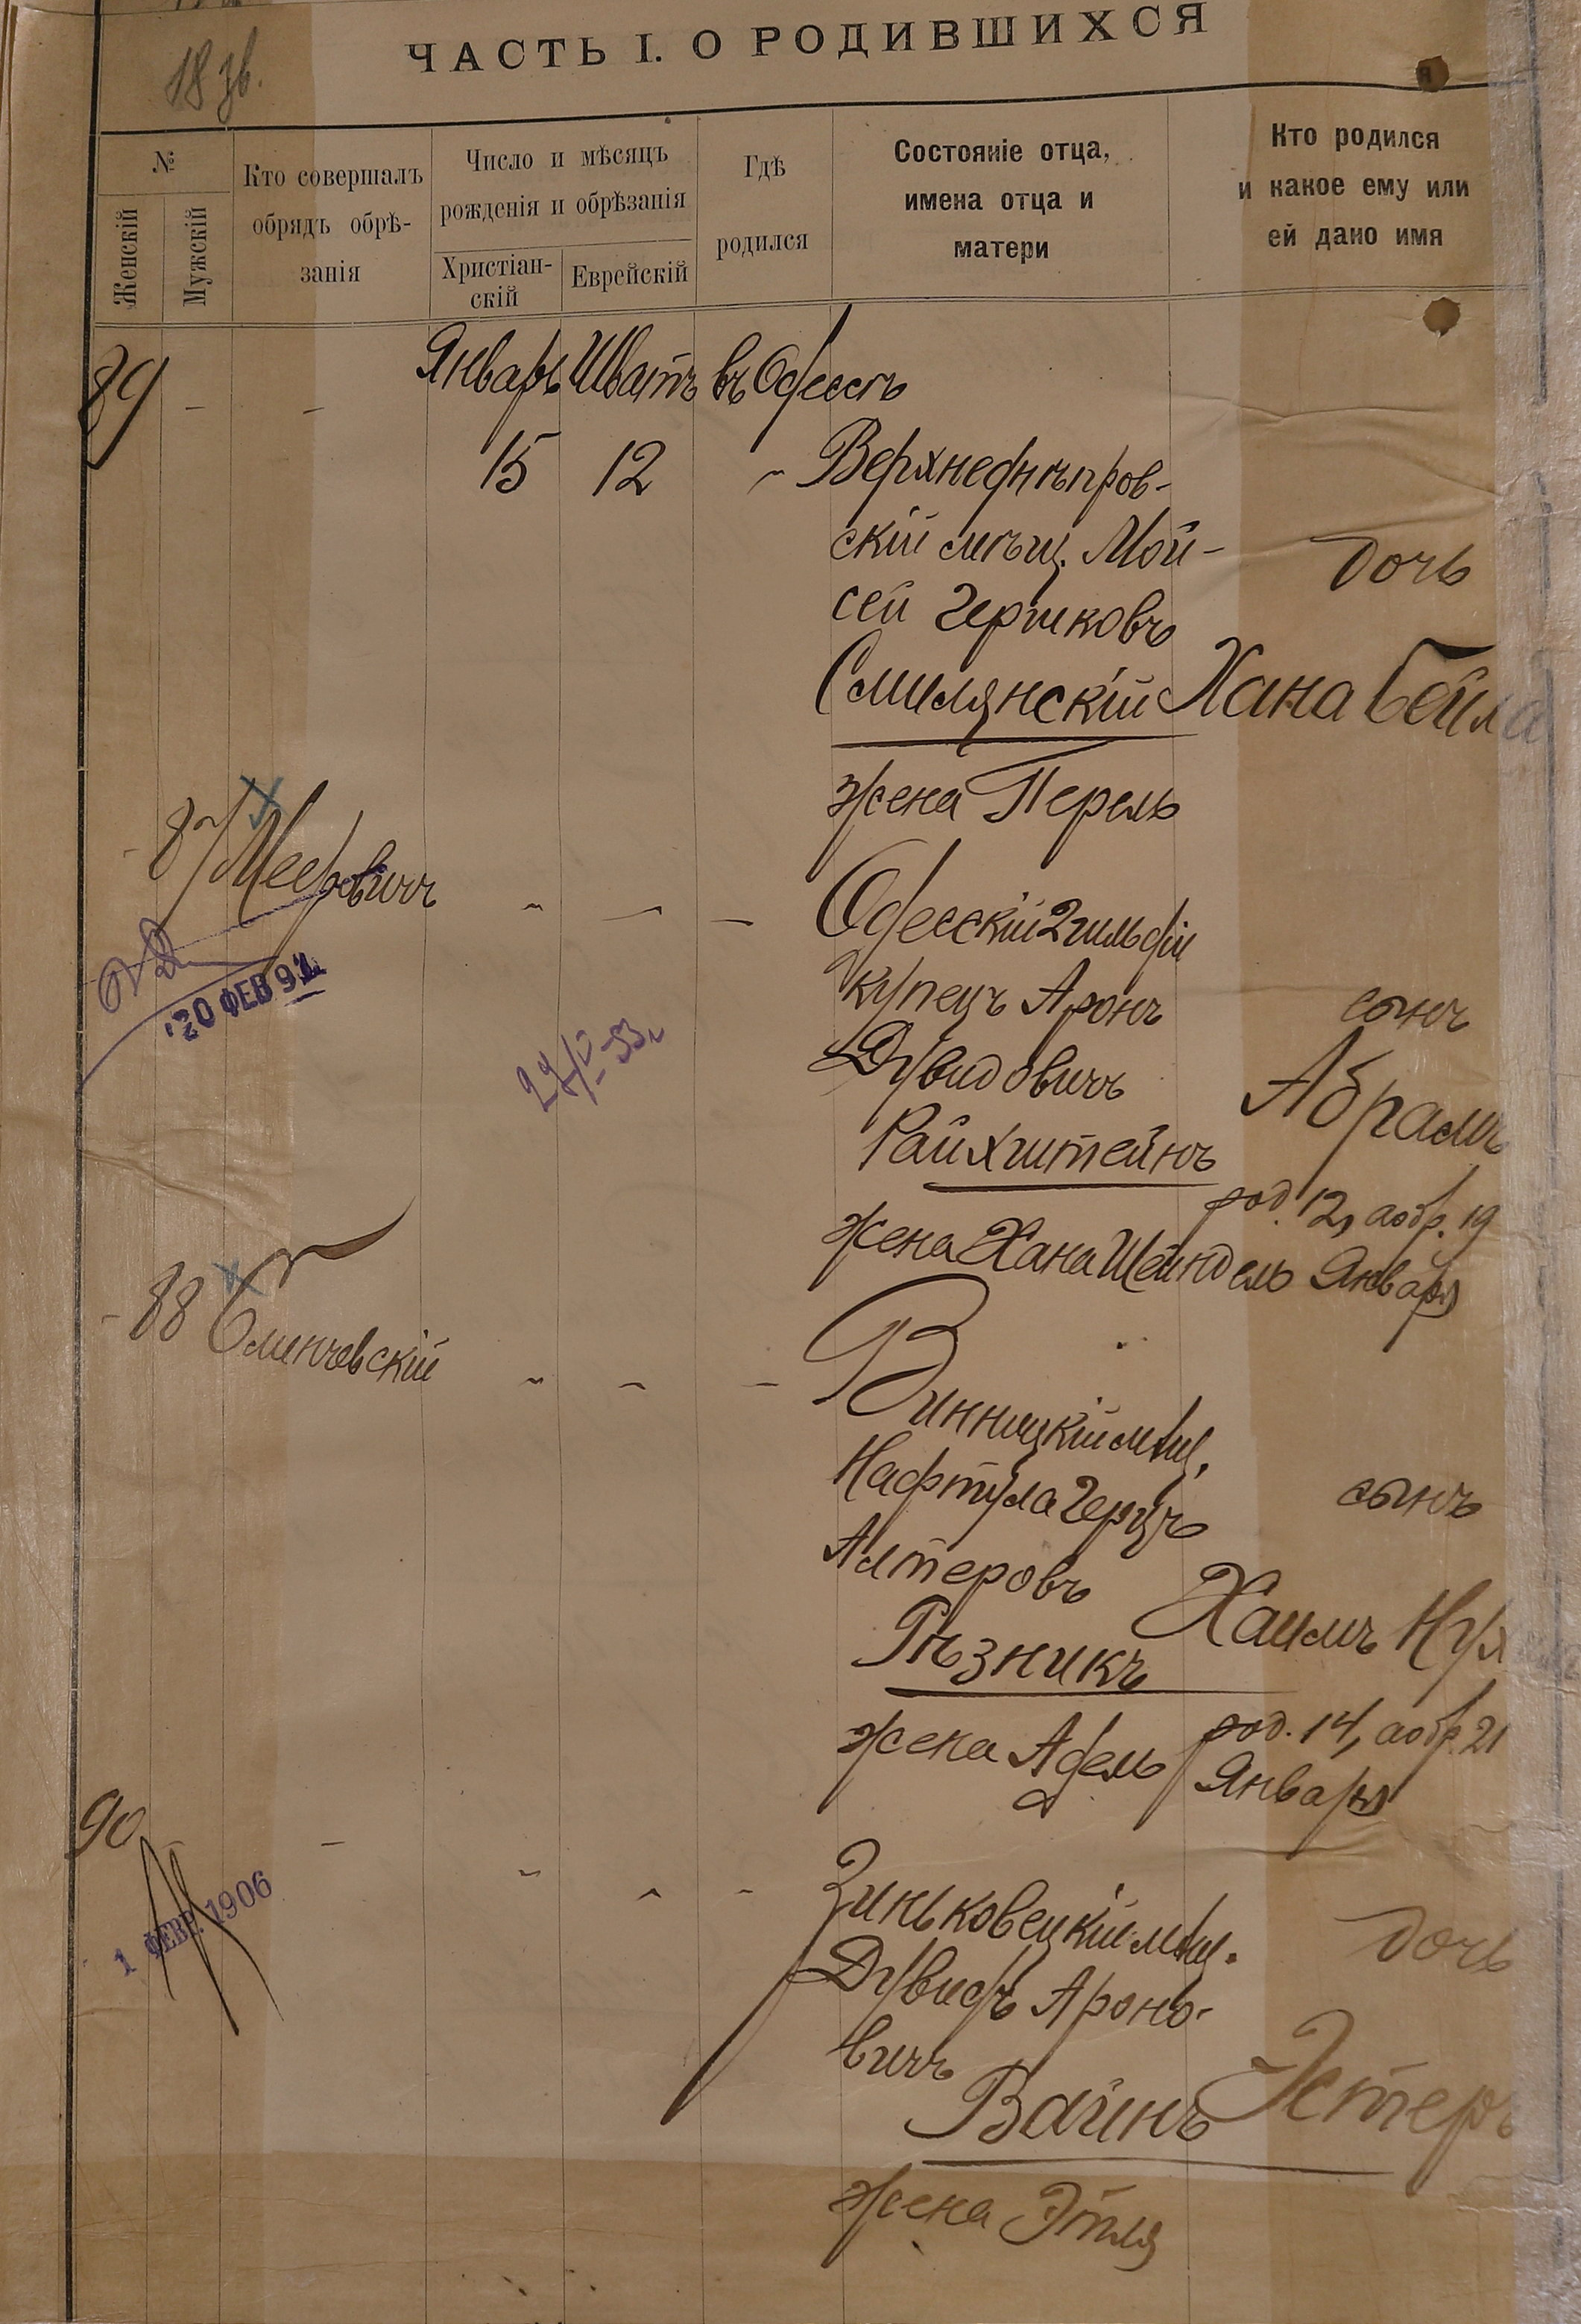 18 зв.
ЧАСТЬ I. О РОДИВШИХСЯ
№
Женскій
Мужскій
Кто совершалъ
обрядъ обрѣ-
занія
Число и мѣсяцъ
рожденія и обрѣзанія
Христіан-
скій
Еврейскій
Гдѣ
родился
Состояніе отца,
имена отца и
матери
Кто родился
и какое ему или
ей дано имя
89 - - Январь Шватъ въ Одессѣ
15 12 Верхнеднѣпров-
скій мѣщ. Мой-
сей Гершковъ
Смилянскій
жена Перель
дочь
Хана Бейла
87 Мееровичъ
20 ФЕВ 92
Одесскій 2 гильдіи
купецъ Аронъ
Дувидовичъ
Райхштейнъ
жена Хана Шейндель
сынъ
Абрамъ
род. 12, а обр. 19
Января
88
Винницкій мѣщ.
Нафтула Герцъ
Алтеровъ
Рѣзникъ
жена Адель
сынъ
Хаимъ
род. 14, а обр. 21
Января
90 -
1 ФЕВР. 1906
Зиньковецкій мѣщ.
Дувидъ Ароно-
вичъ
Вайнъ
жена Этля
дочь
Эстеръ